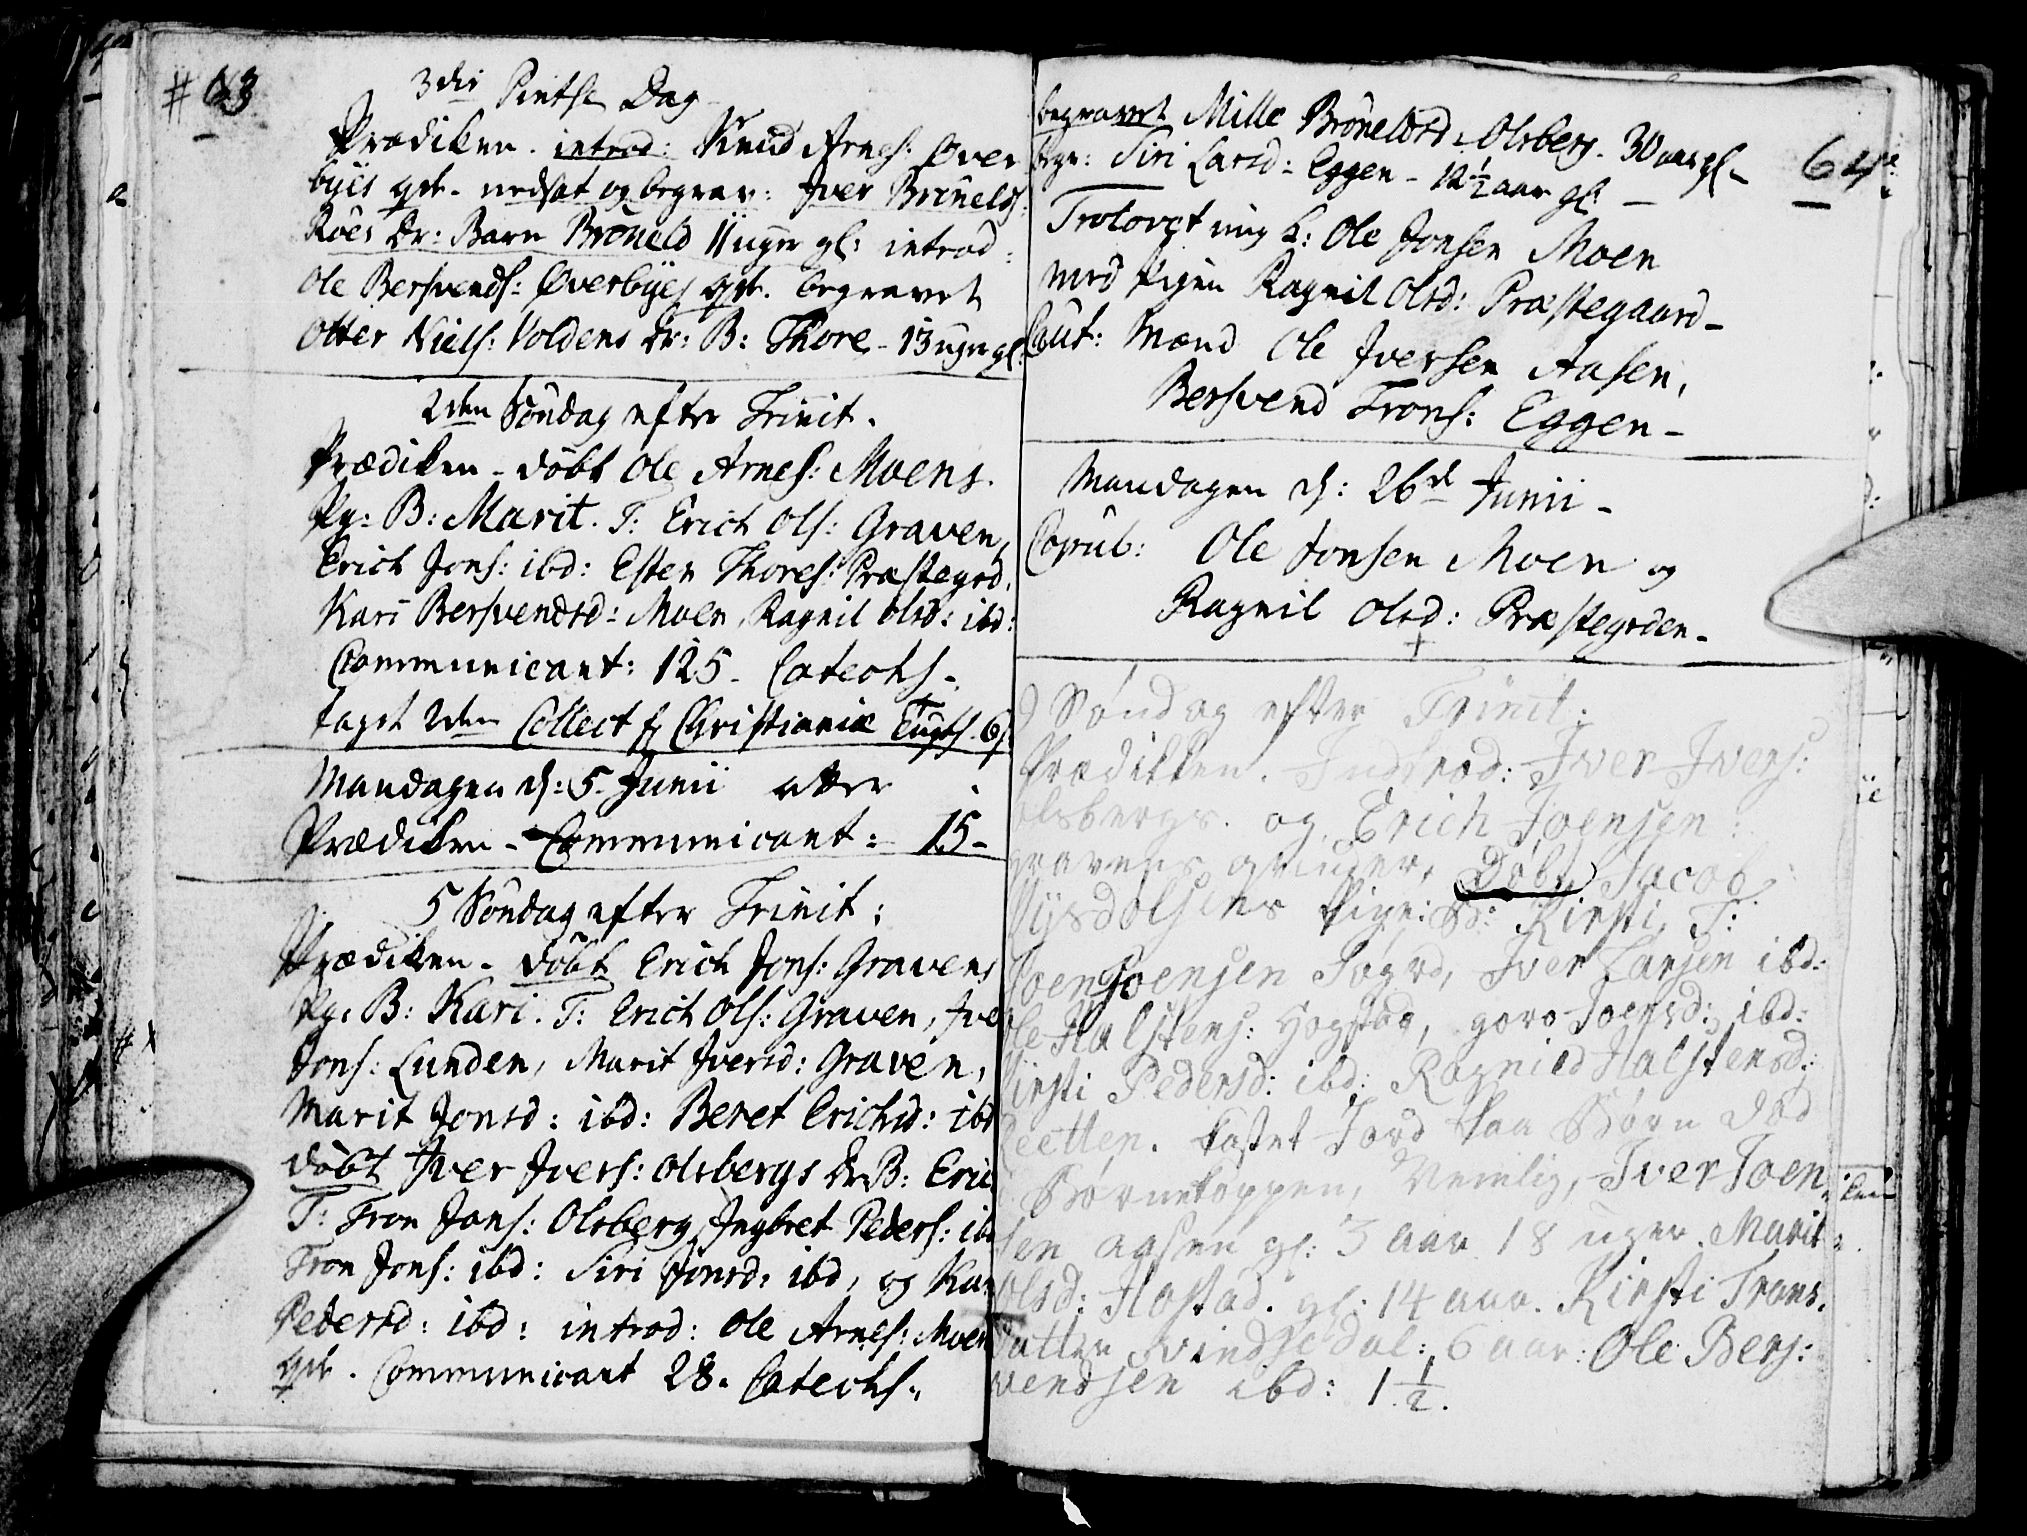 # 63
3die Pintse Dag
Prædiken. introd: Knud Arnes: Over
byes qvi. nedsat og begrav: Iver Brÿnelds:
Röes Dr: Barn Brÿneld 11 uger gl: introd:
Ole Bersvends: Överbyes qvi. begravet
Otter Niels: Voldens Dr: B: Thore - 13 uger gl:
2den Söndag efter Trinit.
Prædiken - döbt Ole Arnes: Moens.
Pg: B: Marit. T: Erich Ols: Graven,
Erich Jons: ibd: Esten Thores: Præstegrd.
Kari Bersvendsd: Moen, Ragnil Olsd: ibd:
Communicant: 125 - Catechs -
taget 2den Collect f Christianiæ Tugts. 6s
Mandagen d: 5. Junii atter
Prædiken - Communicant: 15 -
5 Söndag efter Trinit:
Prædiken - döbt Erich Jons: Gravens
Pg: B: Kari. T: Erich Ols: Graven, Iver
Jons: Lunden, Marit Iversd: Graven,
Marit Jonsd: ibd: Beret Erichsd: ibd
döbt Iver Ivers: Olsbergs Dr: B: Eric
T: Tron Jons: Olsberg, Ingbret Peders: ibd
Tron Jons: ibd: Siri Jonsd: ibd, og Kari
Pedersd: ibd: introd: Ole Arnes: Moens
qvi. Communicant 28. Catechs.
64
begravet Mille Brÿneldsd: Olsberg. 30 aar gl -
begr: Siri Larsd: Eggen - 12 1/2 aar gl: -
Trolovet ung k: Ole Jonsen Moen
med Pigen Ragnil Olsd: Præstegaard -
Caut: Mænd Ole Iversen Aasen,
Bersvend Trons: Eggen -
Mandagen d: 26de Junii -
Copul: Ole Jonsen Moen og
Ragnil Olsd: Præstegrden -
Söndag efter Trinit:
Prædikken. Indtrod: Iver Ivers:
olsbergs. og Erich Joensen
gravens qvinder, Döbt Jacob
Pige: B: Kirsti, T:
Joen Joensen Iver Larsen ibd:
Ole Halstens: Hogstad, goro Joensd: ibd:
Kirsti Pedersd: ibd: Ragnild Halstensd:
kastet Jord paa Börn död
Börnekoppen, Nemlig, Iver Joen-
sen aasen gl: 3 aar 18 uger. Marit
olsd: Hostad. gl: 14 aar. Kirsti Trons.
datter vindsedal: 6 aar: Ole Bers:
vendsen ibd: 1 1/2.